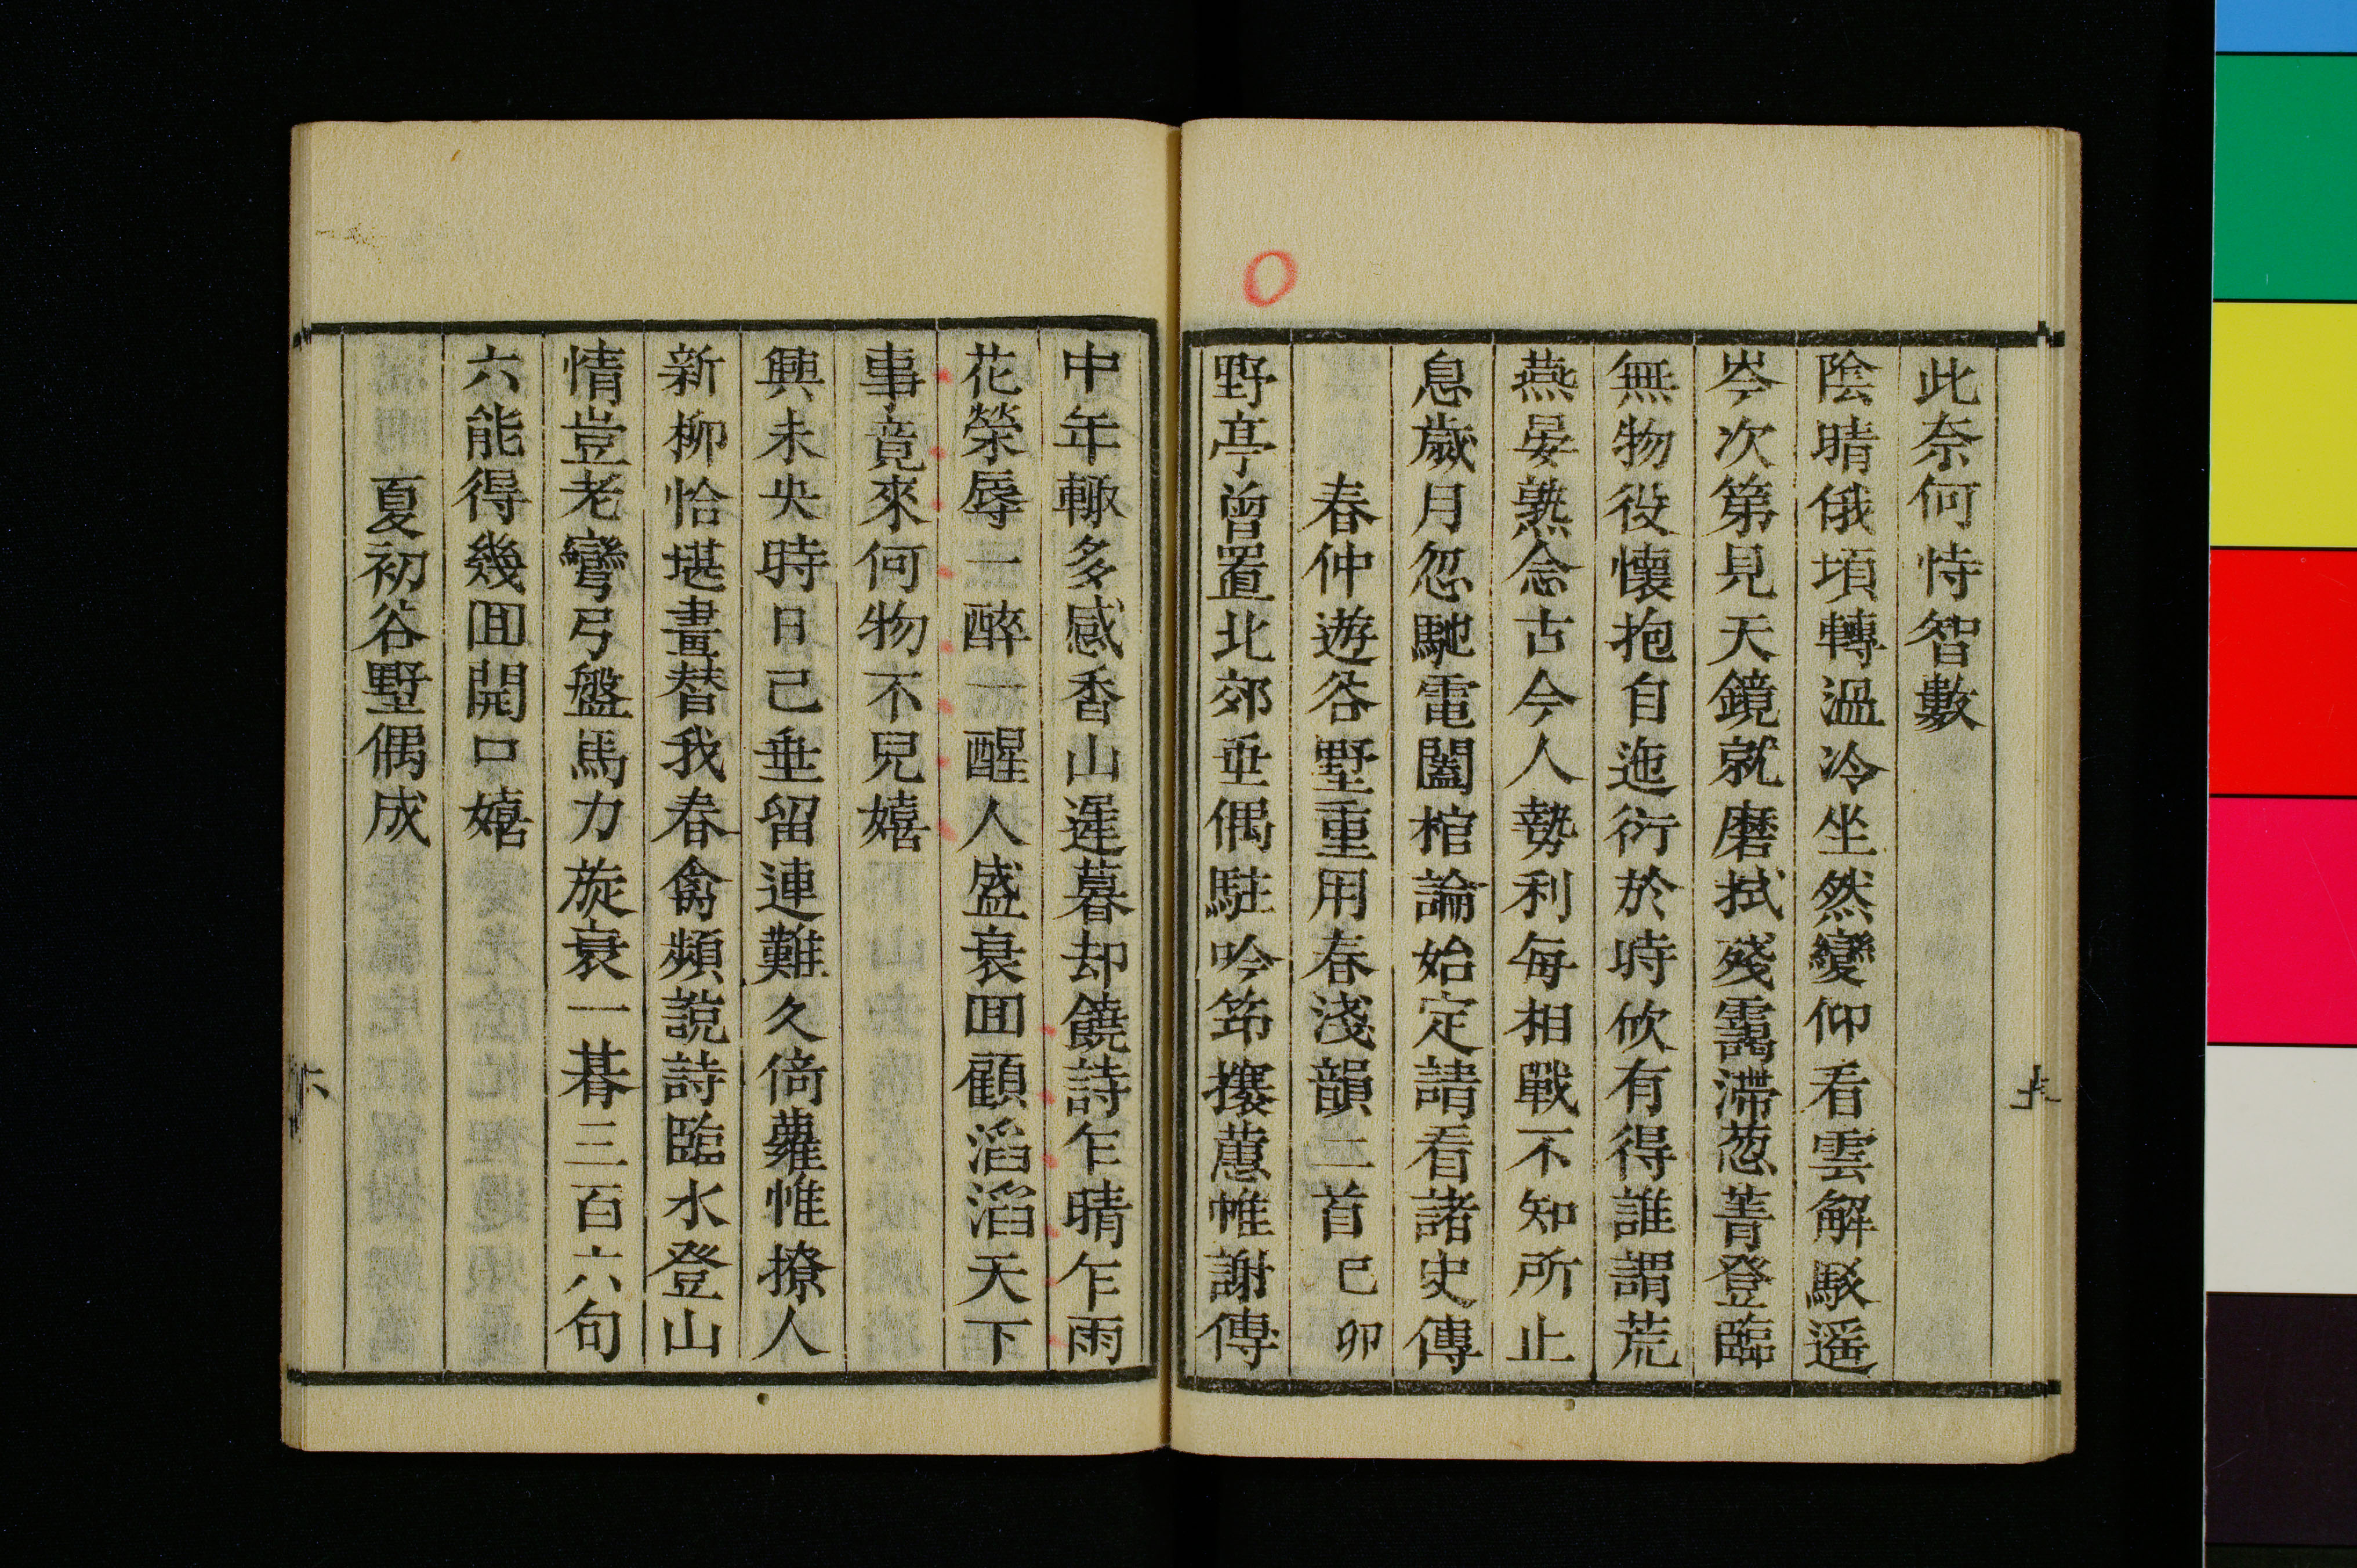 此奈何恃智數
陰晴俄頃轉溫冷坐然變仰看雲解駁遥
岑次第見天鏡就磨拭殘靄滯葱菁登臨
無物役懷抱自迤衍於時攸有得誰謂荒
燕晏熟念古今人勢利每相戰不知所止
息歲月忽馳電闔棺論始定請看諸史傳
春仲遊谷墅重用春淺韻二首己卯
野亭曾置北郊垂偶駐吟筇攘蕙帷謝傳
中年輙多感香山遲暮却饒詩乍晴乍雨
花榮辱一醉一醒人盛衰囬顧滔滔天下
事竟來何物不兒嬉
興未央時日己垂留連難久倚蘿帷撩人
新柳恰堪畫替我春禽頻説詩臨水登山
情豈老彎弓盤馬力旋衰一朞三百六旬
六能得幾囬開口嬉
夏初谷墅偶成
六